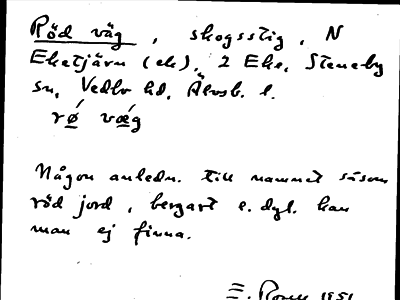 Röd väg, skogsstig, N
Eketjärn (ek), 2 Eke, Steneby
sn, Vedbo hd, Älvsb. l.
rǿ vǽg
Någon anledn. till namnet såsom
röd jord, bergart e. dyl. kan
man ej finna.
E. 1951